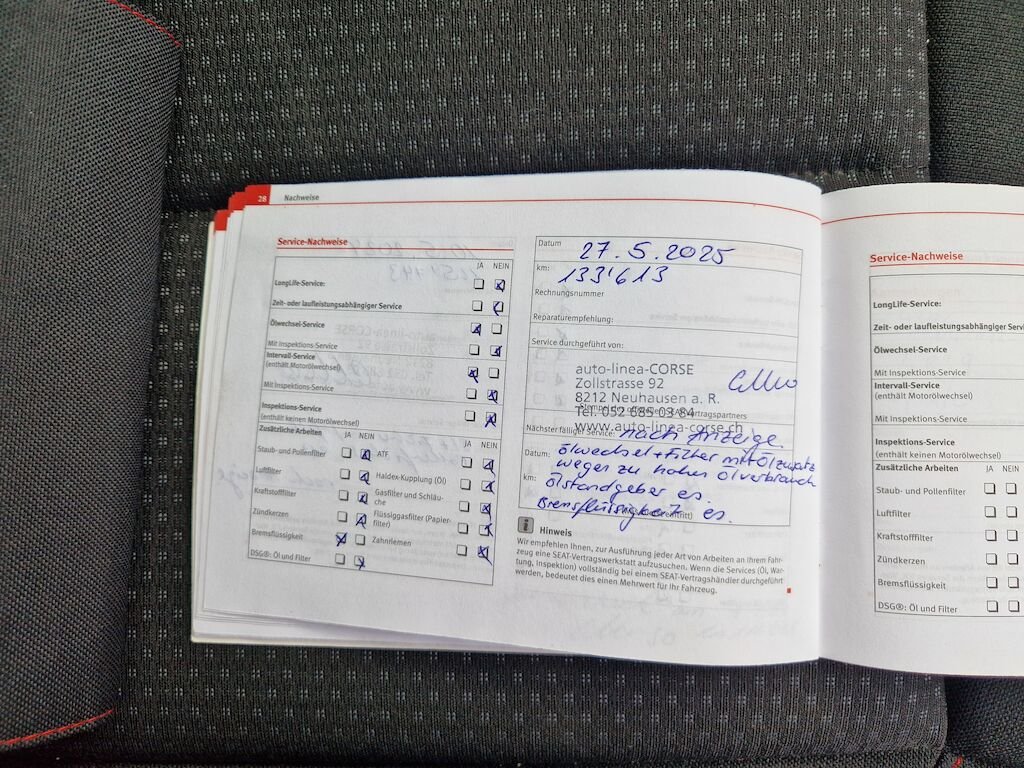 28 Nachweise
Service-Nachweise
JA NEIN
LongLife-Service:
Zeit- oder laufleistungsabhängiger Service
Ölwechsel-Service
Mit Inspektions-Service
Intervall-Service
(enthält Motorölwechsel)
Mit Inspektions-Service
Inspektions-Service
(enthält keinen Motorölwechsel)
Zusätzliche Arbeiten JA NEIN JA NEIN
Staub- und Pollenfilter ATF
Luftfilter Haldex-Kupplung (Öl)
Kraftstofffilter Gasfilter und Schläu-
che
Zündkerzen Flüssiggasfilter (Papier-
filter)
Bremsflüssigkeit Zahnriemen
DSG®: Öl und Filter
Datum 27.5.2025
km: 133'613
Rechnungsnummer
Reparaturempfehlung:
Service durchgeführt von:
auto-linea-CORSE
Zollstrasse 92
8212 Neuhausen a. R.
Tel. 052 685 03 84
SEAT-Vertragspartners
www.auto-linea-corse.ch
Nächster fälliger Service: nach Anzeige.
Datum: Ölwechsel + Filter mit Ölzusatz
wegen zu hohen Ölverbrauch
km: Ölstandgeber es.
Bremsflüssigkeit es.
i Hinweis
Wir empfehlen Ihnen, zur Ausführung jeder Art von Arbeiten an Ihrem Fahr-
zeug eine SEAT-Vertragswerkstatt aufzusuchen. Wenn die Services (Öl, War-
tung, Inspektion) vollständig bei einem SEAT-Vertragshändler durchgeführt
werden, bedeutet dies einen Mehrwert für Ihr Fahrzeug.
Service-Nachweise
LongLife-Service:
Zeit- oder laufleistungsabhängiger Servic
Ölwechsel-Service
Mit Inspektions-Service
Intervall-Service
(enthält Motorölwechsel)
Mit Inspektions-Service
Inspektions-Service
(enthält keinen Motorölwechsel)
Zusätzliche Arbeiten JA NEIN
Staub- und Pollenfilter
Luftfilter
Kraftstofffilter
Zündkerzen
Bremsflüssigkeit
DSG®: Öl und Filter